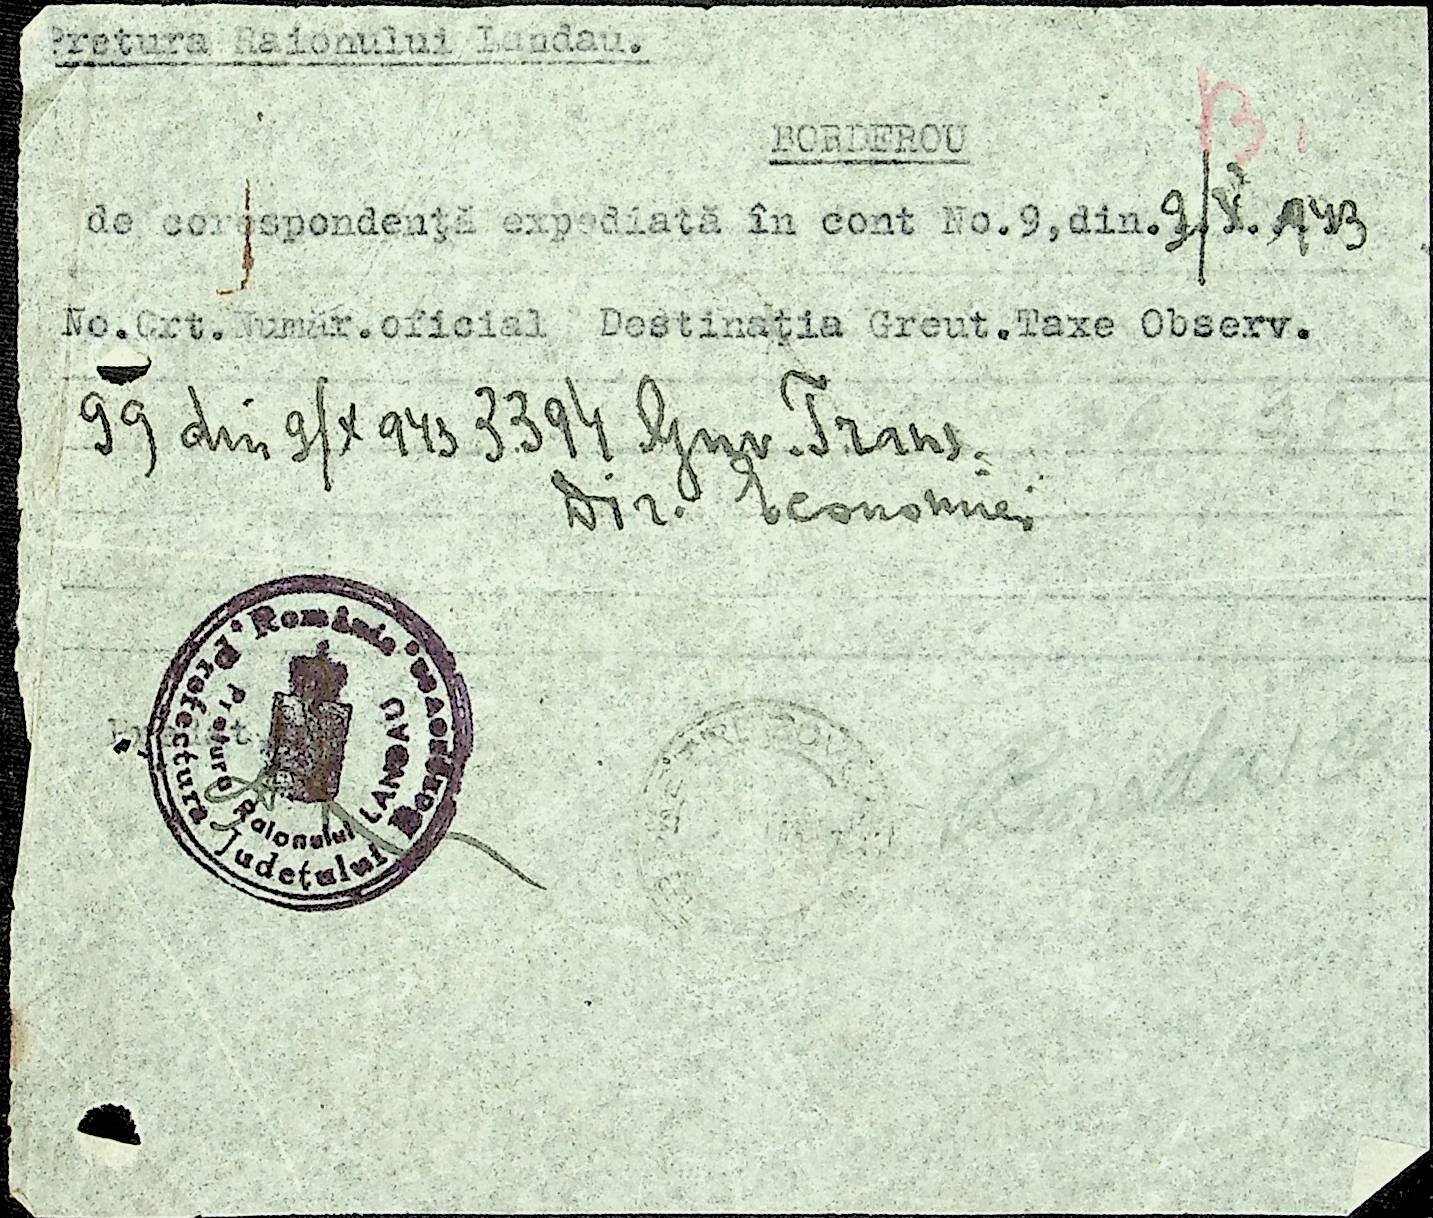 Pretura Raionului Landau.
BORDEROU
de corespondenţă expediată în cont No.9,din.9/X.943
No.Crt.Număr.oficial Destinaţia Greut.Taxe Observ.
99 din 9/X 943 3394 Guv.Trans.
Dir. Economiei
România
Prefectura Judeţului
Pretura Raionului LANDAU